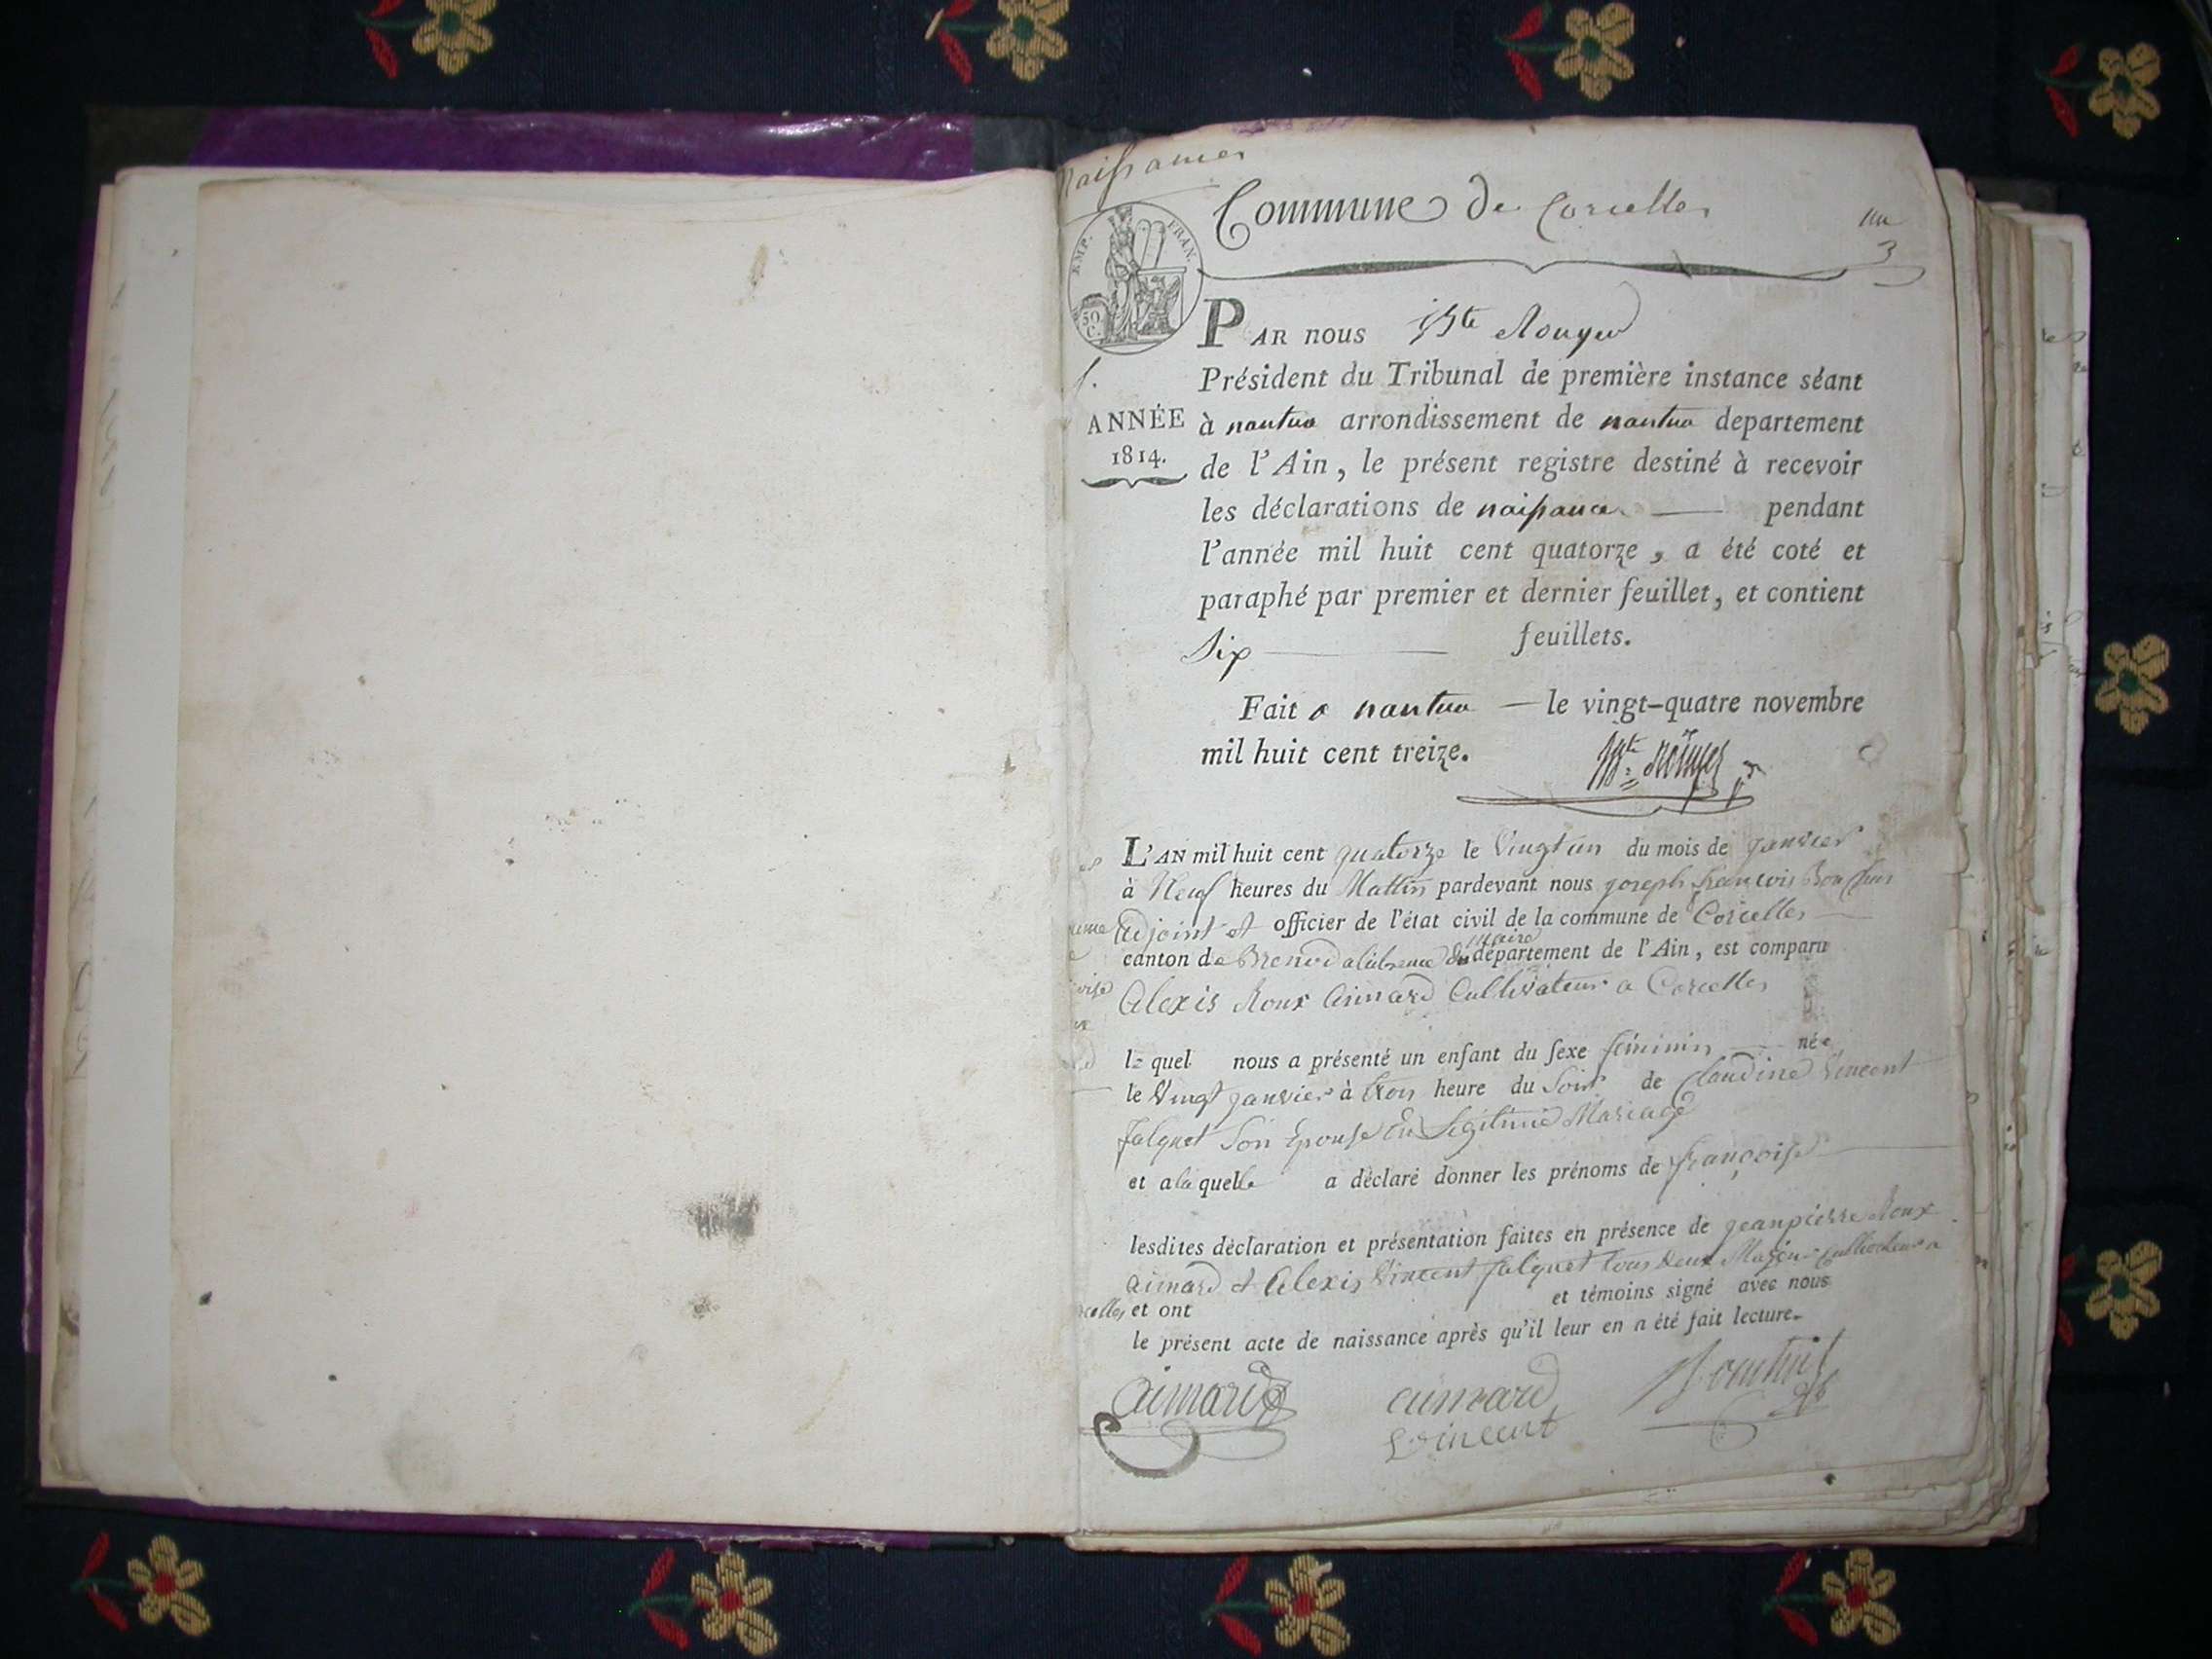 Naissances
Commune de Corcelles
un
3
EMP. FRAN.
50
C.
PAR nous J. Bte Rouyer
Président du Tribunal de première instance séant
ANNÉE
1814.
à nantua arrondissement de nantua departement
de l'Ain, le présent registre destiné à recevoir
les déclarations de naissance pendant
l'année mil huit cent quatorze, a été coté et
paraphé par premier et dernier feuillet, et contient
Six feuillets.
Fait a nantua — le vingt-quatre novembre
mil huit cent treize.
L'AN mil huit cent quatorze le Vingt un du mois de janvier
à Neuf heures du Mattin pardevant nous joseph françois
adjoint et officier de l'état civil de la commune de Corcelles
maire
canton de Brenod a labsence du département de l'Ain, est comparu
Alexis Roux aimard Cultivateur a Corcelles
lequel nous a présenté un enfant du sexe féminin née
le Vingt janvier à trois heure du Soir de Claudine Vincent
falquet Son Epouse En Legitime Mariage
et a la quelle a déclaré donner les prénoms de françoise
lesdites déclaration et présentation faites en présence de jean pierre Roux
aimard et Alexis Vincent falquet tous deux Majeur Cultivateur a
et ont et témoins signé avec nous
le présent acte de naissance après qu'il leur en a été fait lecture.
aimard aimard
Vincent